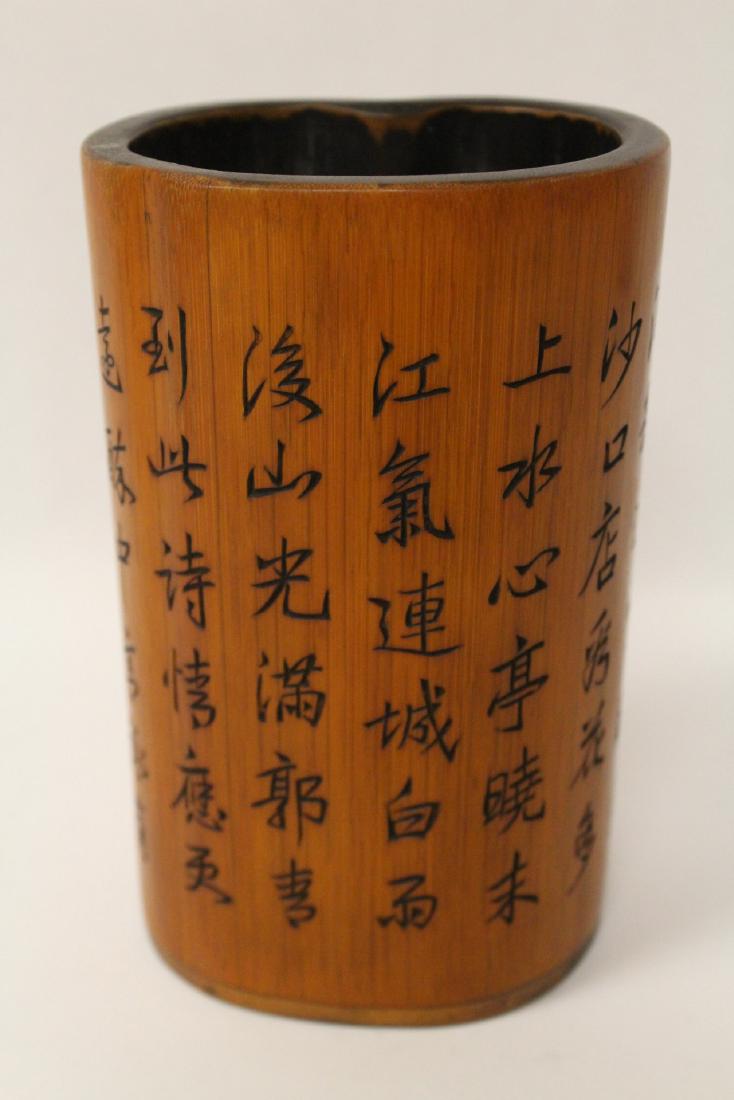 沙口店花
上水心亭曉未
江氣連城白雨
後山光滿郭青
到此詩情應更
遠醉中高